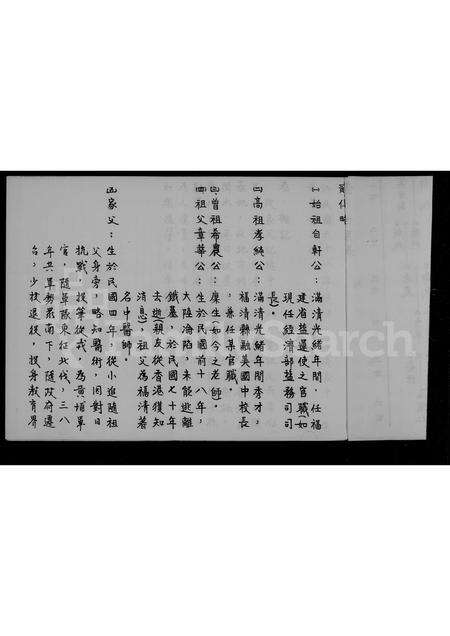 ㈠始祖自軒公：滿清光緒年間，任福
建省鹽運使之官職（如
現任經濟部鹽務司司
長）。
㈡高祖孝純公：滿清光緒年間秀才，
福清縣融美國中校長
，兼任某官職。
㈢曾祖希農公：廩生（如今之老師）。
㈣祖父章華公：生於民國前十八年，
大陸淪陷，未能逃離
鐵幕，於民國七十年
去逝（親友從香港獲知
消息），祖父為福清著
名中醫師。
㈤家父：生於民國四年，從小追隨祖
父身旁，略知醫術，因對日
抗戰，投筆從戎，為黃埔軍
官，隨軍隊東征北伐，三八
年共軍勢眾南下，隨政府遷
台，少校退役，投身教育界
Search